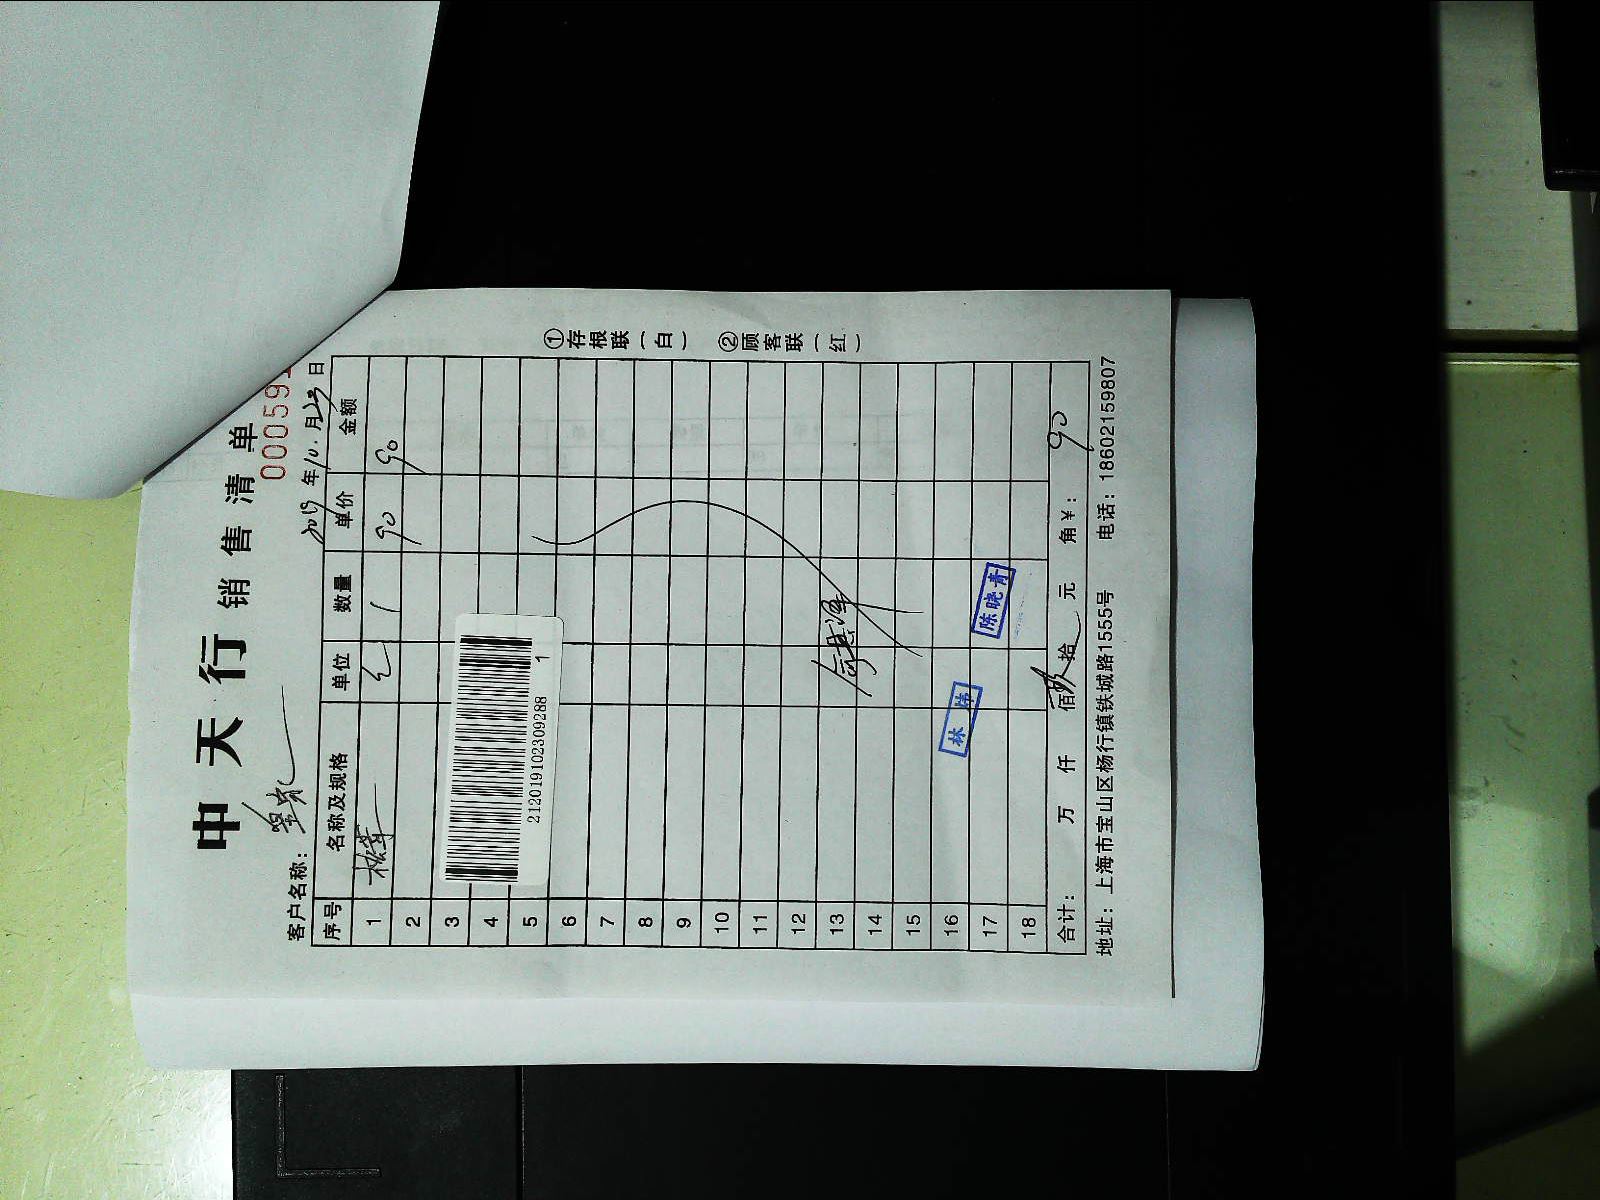 中天行销售清单
000591
客户名称：
2019年10月23日
序号 名称及规格 单位 数量 单价 金额
1 1 90 90
2
3
4
5
6
7
8
9
10
11
12
13
14
15
16
17
18
212019102309288 1
林
陈晓青
合计： 万 仟 佰玖拾 元 角￥：90
地址：上海市宝山区杨行镇铁城路1555号 电话：18602159807
①存根联（白） ②顾客联（红）